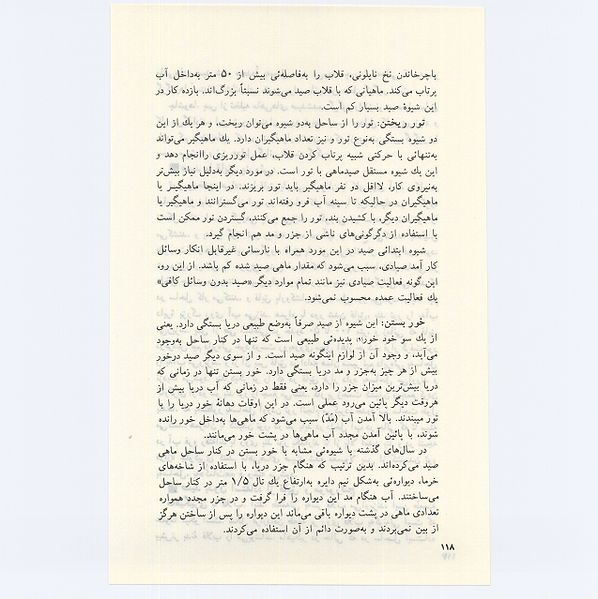 یاچرخاندن نخ نایلونی، قلاب را به‌فاصله‌ئی بیش از ۵۰ متر به‌داخل آب
پرتاب می‌کند. ماهیانی که با قلاب صید می‌شوند نسبتاً بزرگ‌اند. بازده کار در
این شیوهٔ صید بسیار کم است.
تور ریختن: تور را از ساحل به‌دو شیوه می‌توان ریخت، و هر یك از این
دو شیوه بستگی به‌نوع تور و نیز تعداد ماهیگیران دارد. یك ماهیگیر می‌تواند
به‌تنهائی با حرکتی شبیه پرتاب کردن قلاب، عمل تورریزی راانجام دهد و
این یك شیوه مستقل صیدماهی با تور است. در مورد دیگر به‌دلیل نیاز بیش‌تر
به‌نیروی کار، لااقل دو نفر ماهیگیر باید تور بریزند. در اینجا ماهیگیر یا
ماهیگیران در حالیکه تا سینه آب فرو رفته‌اند تور می‌گسترانند و ماهیگیر یا
ماهیگیران دیگر، با کشیدن بند، تور را جمع می‌کنند، گستردن تور ممکن است
با استفاده از دگرگونی‌های ناشی از جزر و مد هم انجام گیرد.
شیوه ابتدائی صید در این مورد همراه با نارسائی غیرقابل انکار وسائل
کار آمد صیادی، سبب می‌شود که مقدار ماهی صید شده کم باشد. از این رو،
این گونه فعالیت صیادی نیز مانند تمام موارد دیگر «صید بدون وسائل کافی»
یك فعالیت عمده محسوب نمی‌شود.
خور بستن: این شیوه از صید صرفاً به‌وضع طبیعی دریا بستگی دارد. یعنی
از یك سو خود خور پدیده‌ئی طبیعی است که تنها در کنار ساحل به‌وجود
می‌آید، و وجود آن از لوازم اینگونه صید است. و از سوی دیگر صید درخور
بیش از هر چیز به‌جزر و مد دریا بستگی دارد. خور بستن تنها در زمانی که
دریا بیش‌ترین میزان جزر را دارد، یعنی فقط در زمانی که آب دریا بیش از
هروقت دیگر پائین می‌رود عملی است. در این اوقات دهانهٔ خور دریا را با
تور میبندند. بالا آمدن آب (مَدّ) سبب می‌شود که ماهی‌ها به‌داخل خور رانده
شوند، با پائین آمدن مجدد آب ماهی‌ها در پشت خور می‌مانند.
در سال‌های گذشته با شیوه‌ئی مشابه با خور بستن در کنار ساحل ماهی
صید می‌کرده‌اند. بدین ترتیب که هنگام جزر دریا، با استفاده از شاخه‌های
خرما، دیواره‌ئی به‌شکل نیم دایره به‌ارتفاع یك تال ۱/۵ متر در کنار ساحل
می‌ساختند. آب هنگام مد این دیواره را فرا گرفت و در جزر مجدد همواره
تعدادی ماهی در پشت دیواره باقی می‌ماند این دیواره را پس از ساختن هرگز
از بین نمی‌بردند و به‌صورت دائم از آن استفاده می‌کردند.
۱۱۸